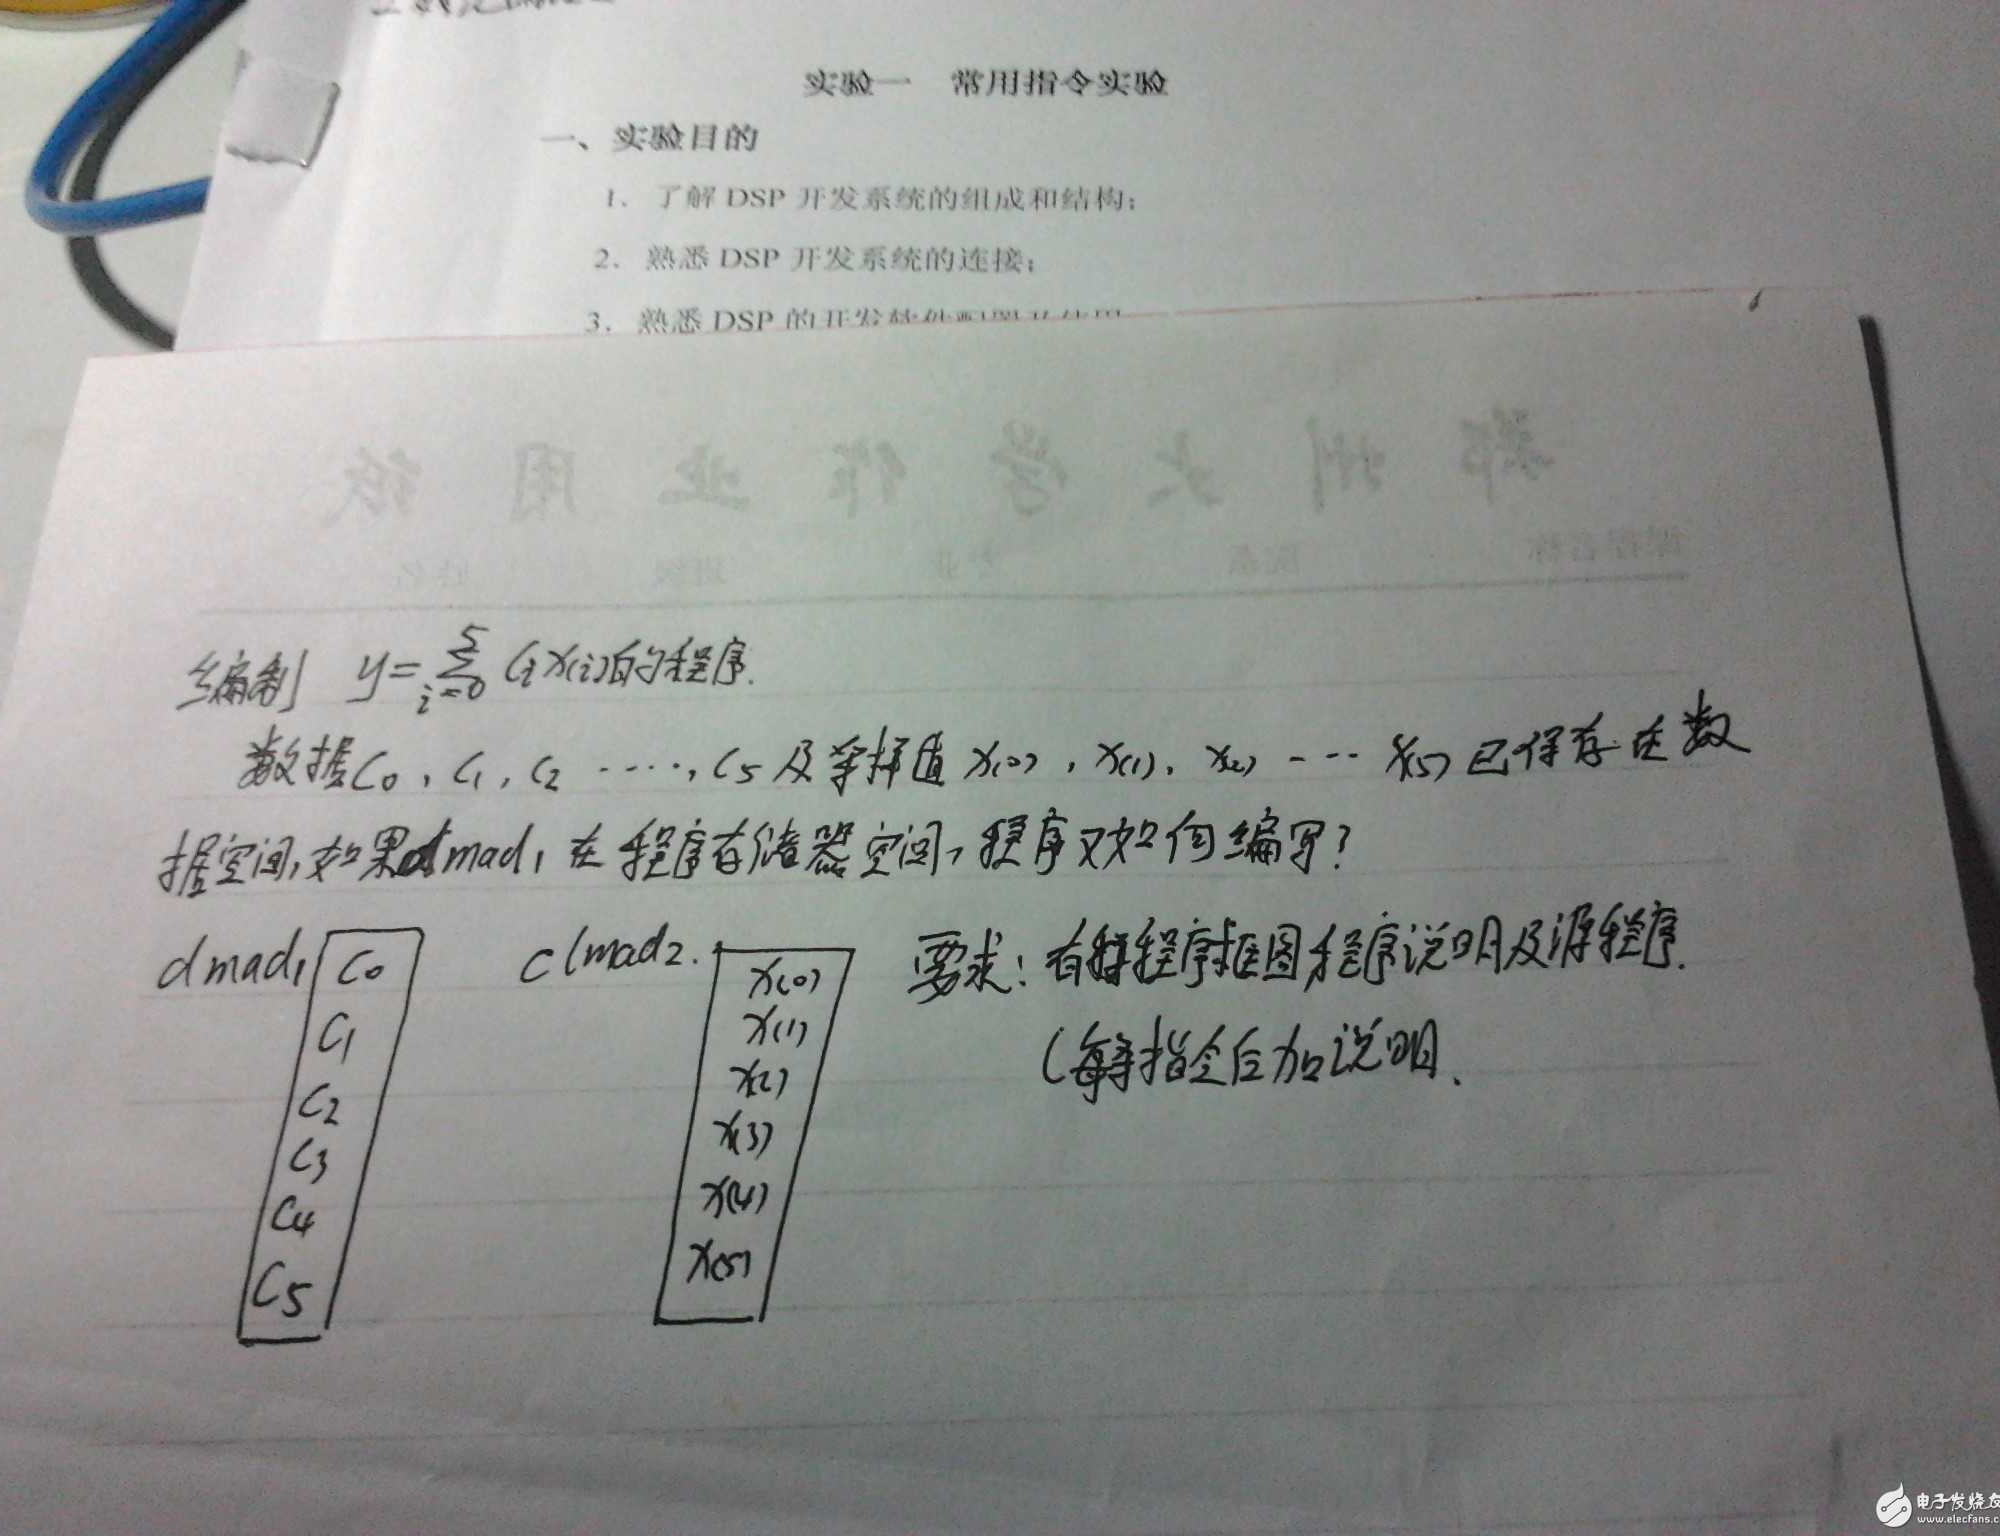 实验一 常用指令实验
一、实验目的
1. 了解 DSP 开发系统的组成和结构;
2. 熟悉 DSP 开发系统的连接;
3. 熟悉 DSP 的开发软件配置及使用
郑州大学作业用纸
课程名称 院系 专业 班级 姓名
编制 y=∑_{i=0}^{5} Cᵢx(i)的程序.
数据C₀,C₁,C₂ ·····,C₅及采样值x(0),x(1),x(2)---- x(5)已保存在数
据空间,如果dmad₁在程序存储器空间,程序又如何编写?
dmad₁ C₀
C₁
C₂
C₃
C₄
C₅
dmad₂. x(0)
x(1)
x(2)
x(3)
x(4)
x(5)
要求:有程序框图程序说明及源程序.
(每条指令后加说明.
电子发烧友
www.elecfans.com